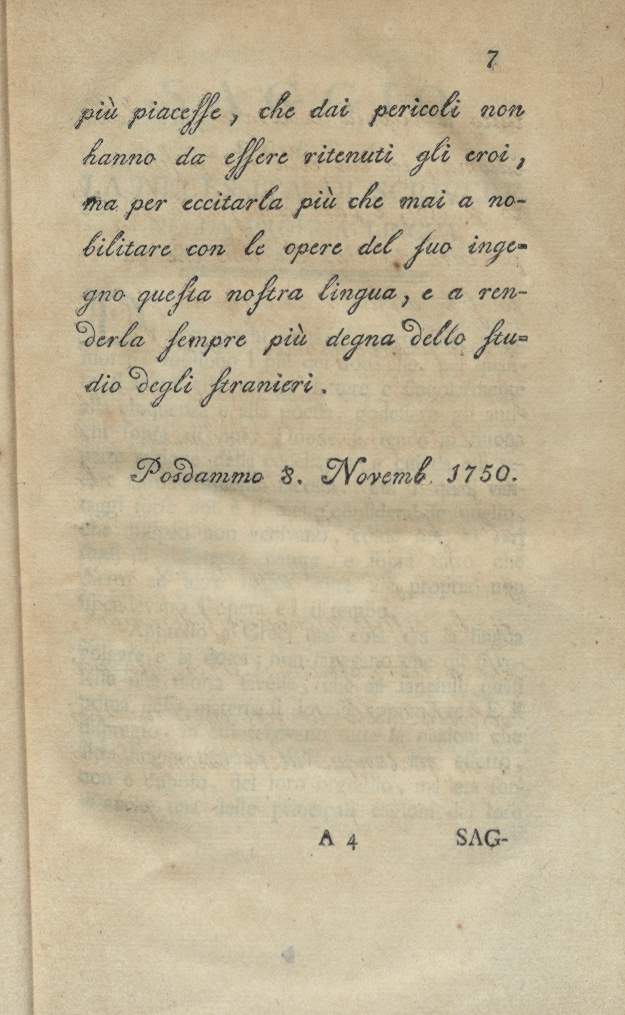 7
più piaceſſe, che dai pericoli non
hanno da eſſere ritenuti gli eroi,
ma per eccitarla più che mai a no-
bilitare con le opere del ſuo inge-
gno queſta noſtra lingua, e a ren-
derla ſempre più degna dello ſtu-
dio degli ſtranieri.
Posdammo 8. Novemb. 1750.
A 4 SAG-